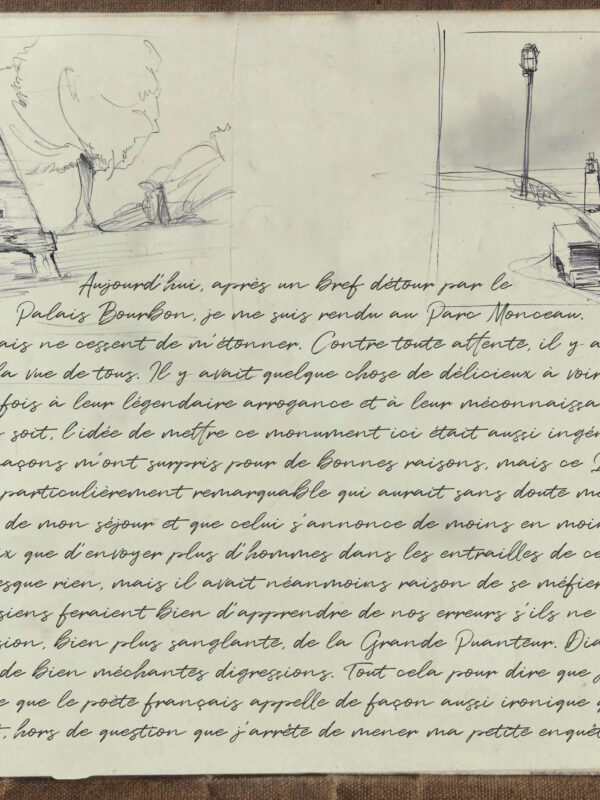 Aujourd'hui, après un bref détour par le
Palais Bourbon, je me suis rendu au Parc Monceau.
ais ne cessent de m'étonner. Contre toute attente, il y a
la vue de tous. Il y avait quelque chose de délicieux à voir
fois à leur légendaire arrogance et à leur méconnaissa
soit, l'idée de mettre ce monument ici était aussi ingén
açons m'ont surpris pour de bonnes raisons, mais ce
particulièrement remarquable qui aurait sans doute mé
de mon séjour et que celui s'annonce de moins en moin
x que d'envoyer plus d'hommes dans les entrailles de ce
esque rien, mais il avait néanmoins raison de se méfier
siens feraient bien d'apprendre de nos erreurs s'ils ne
sion, bien plus sanglante, de la Grande Puanteur. Dia
de bien méchantes digressions. Tout cela pour dire que j
e que le poète français appelle de façon aussi ironique q
t, hors de question que j'arrête de mener ma petite enquêt